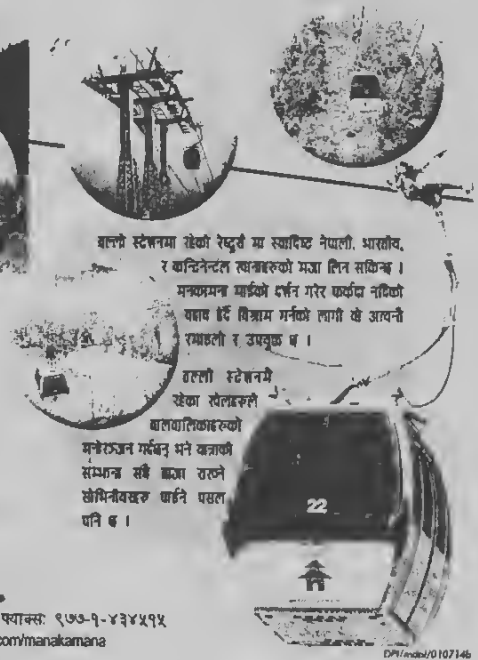 तल्लो स्टेशनमा रहेको रेष्टुराँ मा स्वादिष्ट नेपाली, भारतीय,
र कन्टिनेन्टल खानाहरुको मजा लिन सकिन्छ ।
मनकामना माईको दर्शन गरेर फर्कदा नदिको
बहाव हेर्दै विश्राम गर्नको लागी यो अत्यन्तै
रमाइलो र उपयुक्त छ ।
तल्लो स्टेशनमै
रहेका खेलहरुले
बालबालिकाहरुको
मनोरञ्जन गर्दछन् भने यात्राको
सम्झना सधैं ताजा राख्ने
सोभिनीयरहरु पाईने पसल
पनि छ ।
22
फ्याक्स: ९७७-१-४३४५१५
com/manakamana
DPI/mobi/0107146